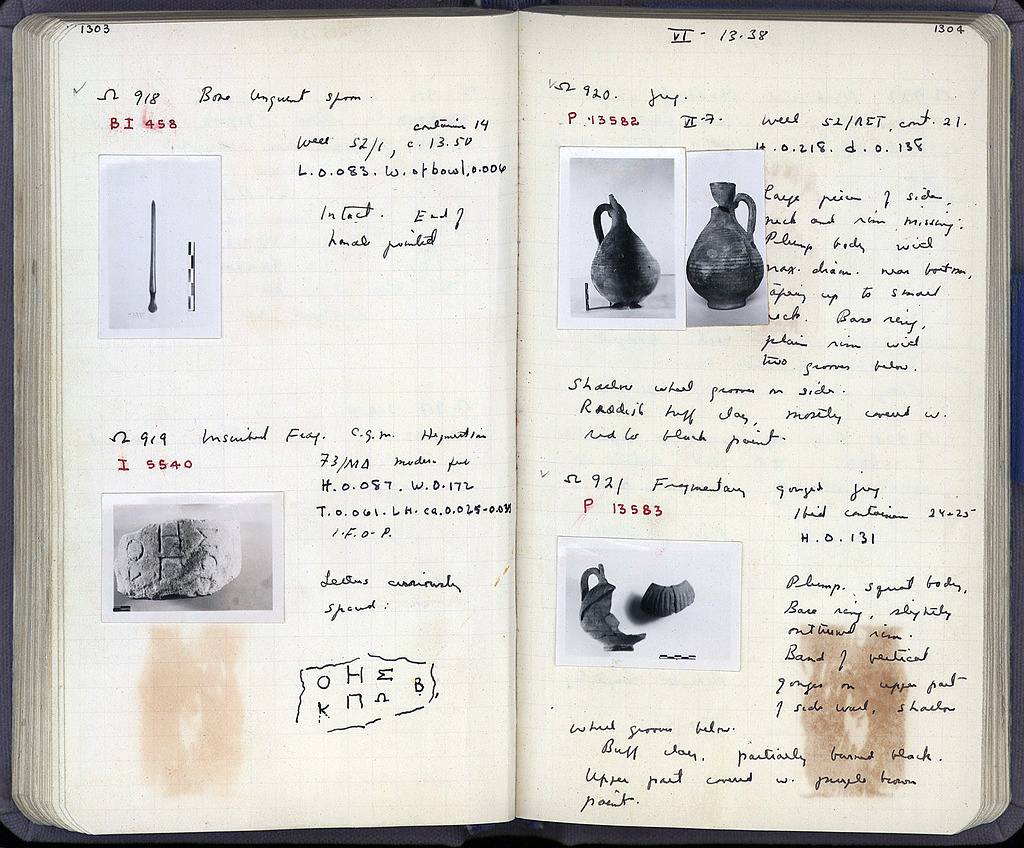 1303
Ω 918 Bone Unguent spoon.
BI 458
container 14
Well 52/1, c. 13.50
L.0.083. W. of bowl, 0.006
Intact. End of
handle pointed
Ω 919 Inscribed Frag. C.g.m. Hymettian
I 5540
73/ΜΔ modern fill
H.0.087. W.0.172
T.0.061. LH. ca. 0.025-0.035
I.F.O.P.
Letters curiously
spaced:
Ο Η Σ
Κ Π Ω Β
VI - 13.38
1304
Ω 920. Jug.
P 13582 VI-7.
Well 52/ΛΣΤ, cont. 21.
H.0.218. d.0.138
Large pieces of side,
neck and rim missing.
Plump body with
max. diam. near bottom,
taping up to small
neck. Base ring,
plain rim with
two grooves below.
Shallow wheel grooves on side.
Reddish buff clay, mostly covered w.
red to black paint.
Ω 921 Fragmentary gouged jug
P 13583
Ibid container 24+25
H.0.131
Plump, squat body,
Base ring, slightly
outturned rim.
Band of vertical
gouges on upper part
of side wall, shallow
wheel grooves below.
Buff clay, partially burned black.
Upper part covered w. purple brown
paint.